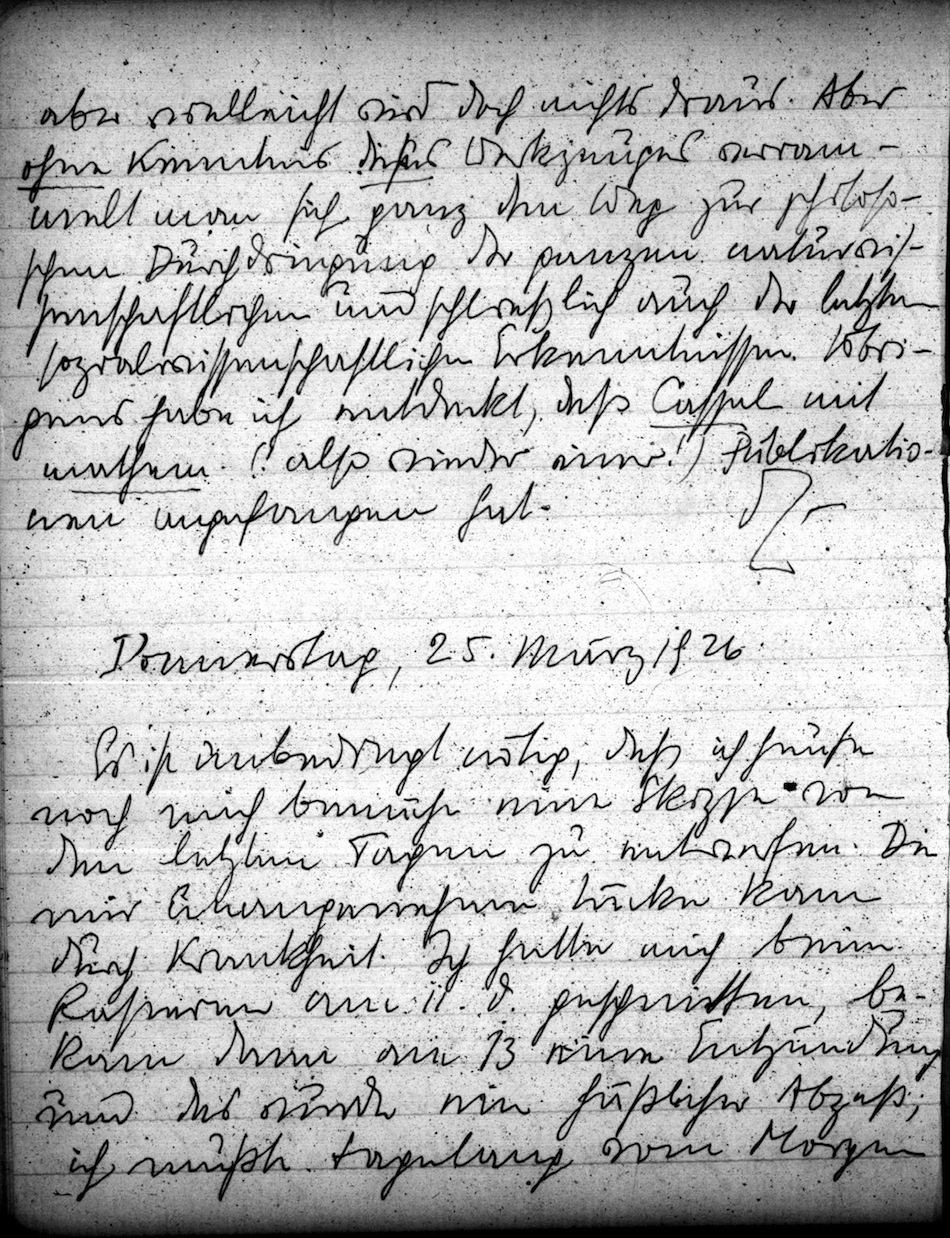 aber vielleicht wird doch nichts draus. Aber
ohne Kenntnis dieses Werkzeuges verram-
melt man sich ganz den Weg zur philoso-
schen Durchdringung der ganzen naturwis-
senschaftlichen und schliesslich auch der letzten
sozialwissenschaftlichen Erkenntnissen. Übri-
gens habe ich entdeckt, dass Cassel mit
mathem. (! also wieder einer!) Publikatio-
nen angefangen hat.
Donnerstag, 25. März 1926.
Es ist unbedingt nötig, dass ich heute
noch mich bemühe eine Skizze von
den letzten Tagen zu entwerfen. Die
mir unangenehme Lücke kam
durch Krankheit. Ich hatte mich beim
Rasieren am 11. d. geschnitten, be-
kam dann am 13 eine Entzündung
und das wurde ein häßlicher Abzeß;
ich mußte tagelang vom Morgen